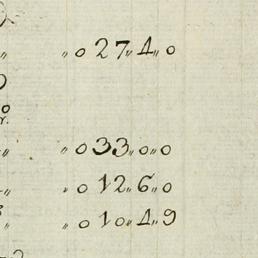 " " 0 27 " 4 " 0
0
" " 0 33 " 0 " 0
" " 0 12 " 6 " 0
" " 0 10 " 4 " 9